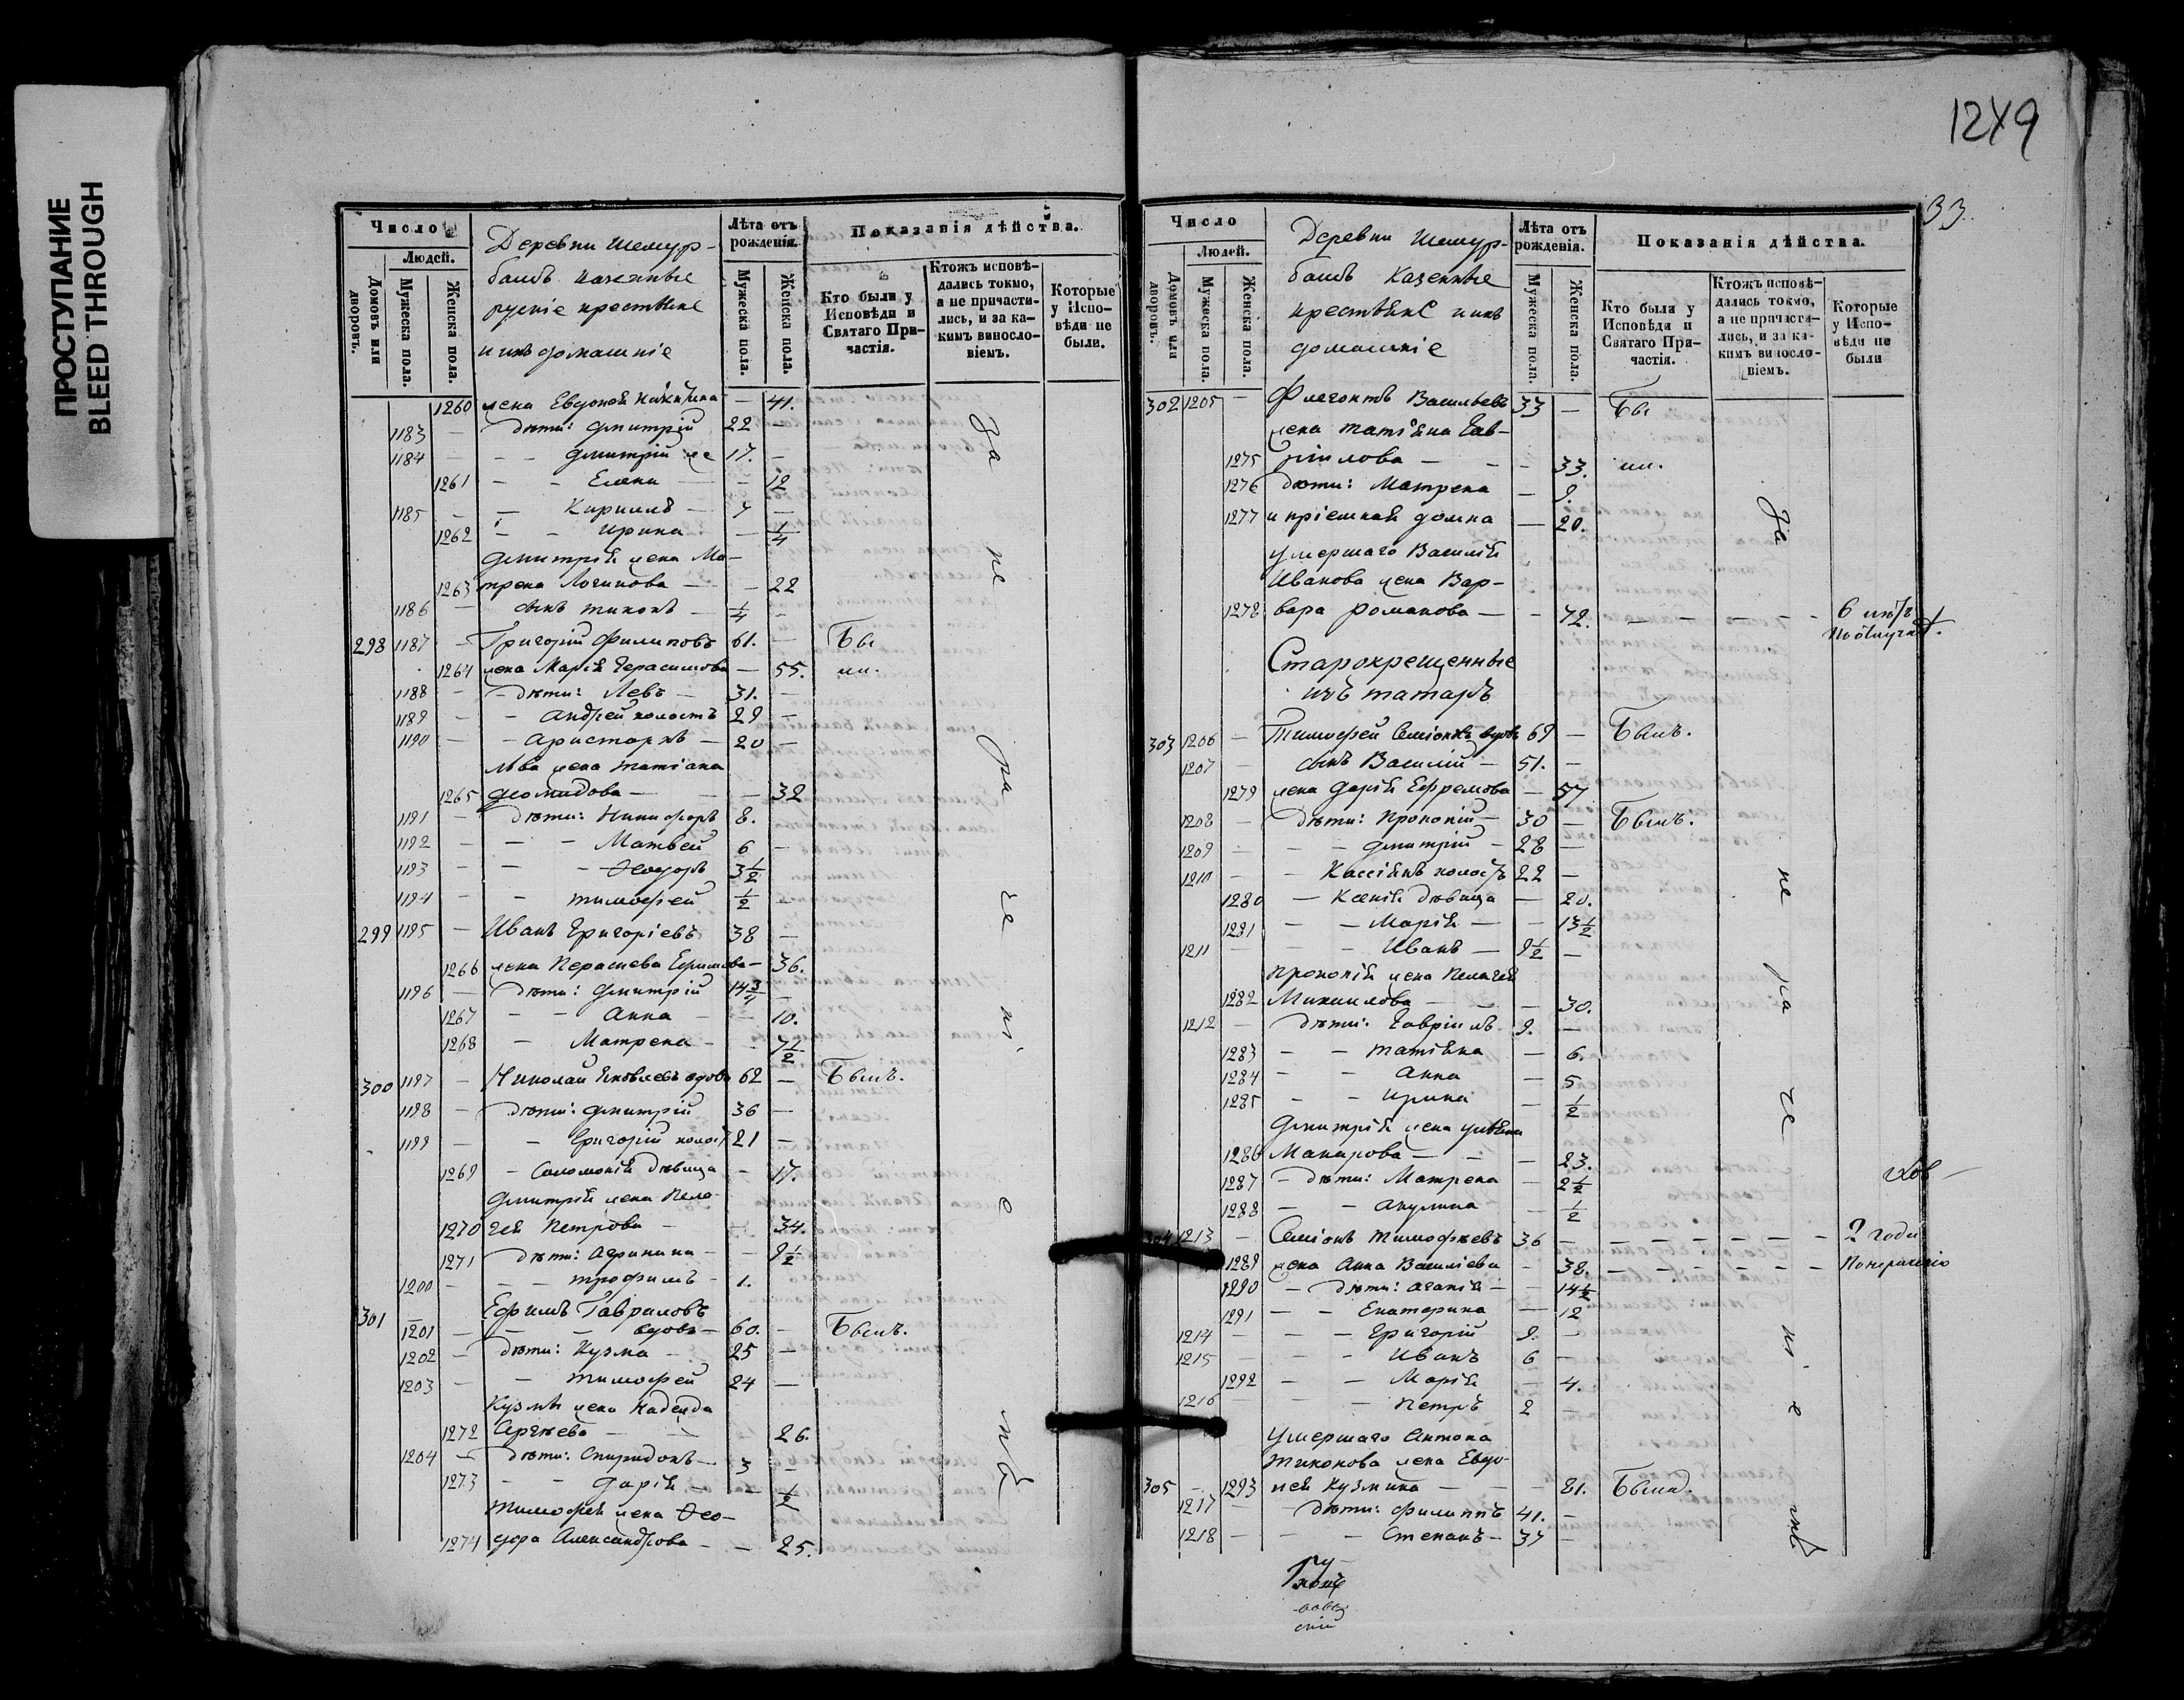 ПРОСТУПАНИЕ
BLEED THROUGH
Число
Людей.
Домовъ или дворовъ.
Мужеска пола.
Женска пола.
Деревни Шемур-
башъ казенные
рускіе крестьяне
и ихъ домашніе
Лѣта отъ рожденія.
Мужеска пола.
Женска пола.
Показанія дѣйства.
Кто были у Исповѣди и Святаго При-частія.
Ктожъ исповѣ-дались токмо, а не причасти-лись, и за ка-кимъ виносло-віемъ.
Которые у Испо-вѣди не были.
1260 жена Евдокія Никитина — 41.
1183 — дѣти: Дмитрій 22 —
1184 — Дмитрій же 17. —
1261 — Елена — 12
1185 — Кириллъ — 7 —
1262 — Ирина — 1/4
Дмитрія жена Ма-
1263 трена Логинова — 22
1186 — сынъ Тихонъ — 1/4 —
298 1187 — Григорій Филиповъ 61. — Бы
1264 жена Марія Герасимова — 55. ли.
1188 — дѣти: Левъ — 31. —
1189 — Андрей холостъ 29 —
1190 — Аристархъ — 20 —
Льва жена Татіана
1265 Деомидова — 32
1191 — дѣти: Никифоръ 8.
1192 — Матвей 6 —
1193 — Ѳеодоръ 3 1/2
1194 — Тимофей 1/2 —
299 1195 — Иванъ Григоріевъ 38 —
1266 жена Парасцева Ефимова — 36.
1196 — дѣти: Дмитрій 14 3/4 —
1267 — Анна — 10.
1268 — Матрена — 7 1/2
300 1197 — Николай Яковлевъ вдовъ 62 — Былъ.
1198 — дѣти: Дмитрій 36 —
1199 — Григорій холост 21 —
1269 — Соломонія дѣвица — 17.
Дмитрія жена Пела-
1270 гея Петрова — 34.
1271 дѣти: Агрипина — 9 1/2
1200 — Трофимъ — 1.
301 Ефимъ Гавриловъ
1201 — вдовъ — 60. — Былъ.
1202 — дѣти: Кузма — 25 —
1203 — Тимофей 24 —
Кузмы жена Надежда
1272 Сергѣева — 26.
1204 — дѣти: Спиридонъ — 3 —
1273 — Дарія — 1/2
Тимофея жена Ѳео-
1274 дора Александрова — 25.
За не ра че ні е мъ
1249
33
Число
Людей.
Домовъ или дворовъ.
Мужеска пола.
Женска пола.
Деревни Шемур-
башъ казенные
крестьяне и ихъ
домашніе
Лѣта отъ рожденія.
Мужеска пола.
Женска пола.
Показанія дѣйства.
Кто были у Исповѣди и Святаго При-частія.
Ктожъ исповѣ-дались токмо, а не причасти-лись, и за ка-кимъ виносло-віемъ.
Которые у Испо-вѣди не были
302 1205 — Флегонтъ Васильевъ 33 — Бы
жена Татіяна Гав-
1275 ріилова — 33. ли.
1276 дѣти: Матрена — 9.
1277 и пріемная Домна — 20.
умершаго Василія
Иванова жена Вар-
1278 вара Романова — 72. — 6 лѣтъ
Старокрещенные
изъ татаръ
303 1206 — Тимофей Семіоновъ вдовъ 69 — Былъ.
1207 сынъ Василій — 51. —
1279 жена Дарія Ефремова — 57
1208 — дѣти: Прокопій — 30 — Былъ.
1209 — Дмитрій — 28 —
1210 — Кассіянъ холостъ 22 —
1280 — Ксенія дѣвица — 20.
1281 — Марія — 13 1/2
1211 — Иванъ — 9 1/2 —
Прокопія жена Пелагея
1282 Михаилова — 30.
1212 — дѣти: Гавріилъ 9. —
1283 — Татіяна — 6.
1284 — Анна — 5
1285 — Ирина — 1/2
Дмитрія жена Ульяна
1286 Макарова — 23.
1287 — дѣти: Матрена — 2 1/2
1288 — Акулина — 1/2
304 1213 — Семіонъ Тимофѣевъ 36 — 2 года
1289 жена Анна Васильева — 38. — Понераченію
1290 — дѣти: Агапія — 14 1/2
1291 — Екатерина — 12
1214 — Григорій 9. —
1215 — Иванъ 6 —
1292 — Марія — 4.
1216 — Петръ 2 —
умершаго Антона
Тихонова жена Евдо-
305 — 1293 кея Кузмина — 81. Была.
1217 — дѣти: Филиппъ 41. —
1218 — Степанъ — 37 —
За не ра че ні е мъ